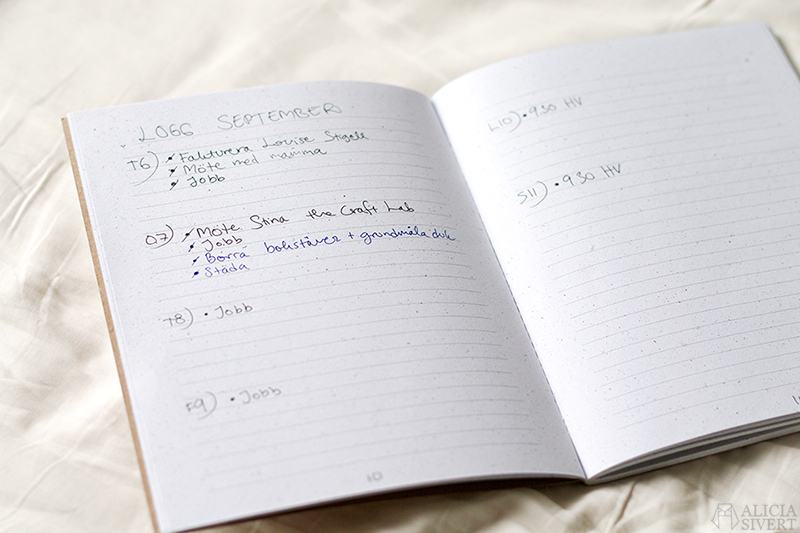 LOGG SEPTEMBER
T6) • Fakturera Louise Stigell
• Möte med mamma
• Jobb
O7) • Möte Stina the Craft Lab
• Jobb
• Borra bokstäver + grundmåla duk
• Städa
T8) • Jobb
F9) • Jobb
10
L10) • 930 HV
S11) • 930 HV
ALICIA
SIVERT